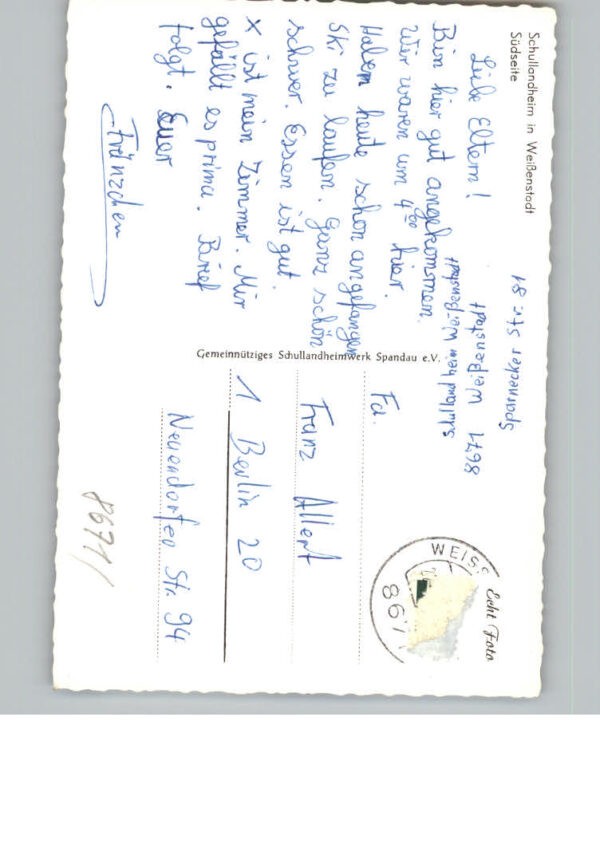 Schullandheim in Weißenstadt
Südseite
Liebe Eltern!
Bin hier gut angekommen.
Wir waren um 4⁰⁰ hier.
Haben heute schon angefangen
Ski zu laufen. Ganz schön
schwer. Essen ist gut.
X ist mein Zimmer. Mir
gefällt es prima. Brief
folgt. Euer
Fränzchen
Gemeinnütziges Schullandheimwerk Spandau e.V.
Sparnecker Str. 81
8671 Weißenstadt
Schullandheim Weißenstadt
Echt Foto
WEISS
867
Fa.
Franz Allert
1 Berlin 20
Neuendorfer Str. 94
8671/